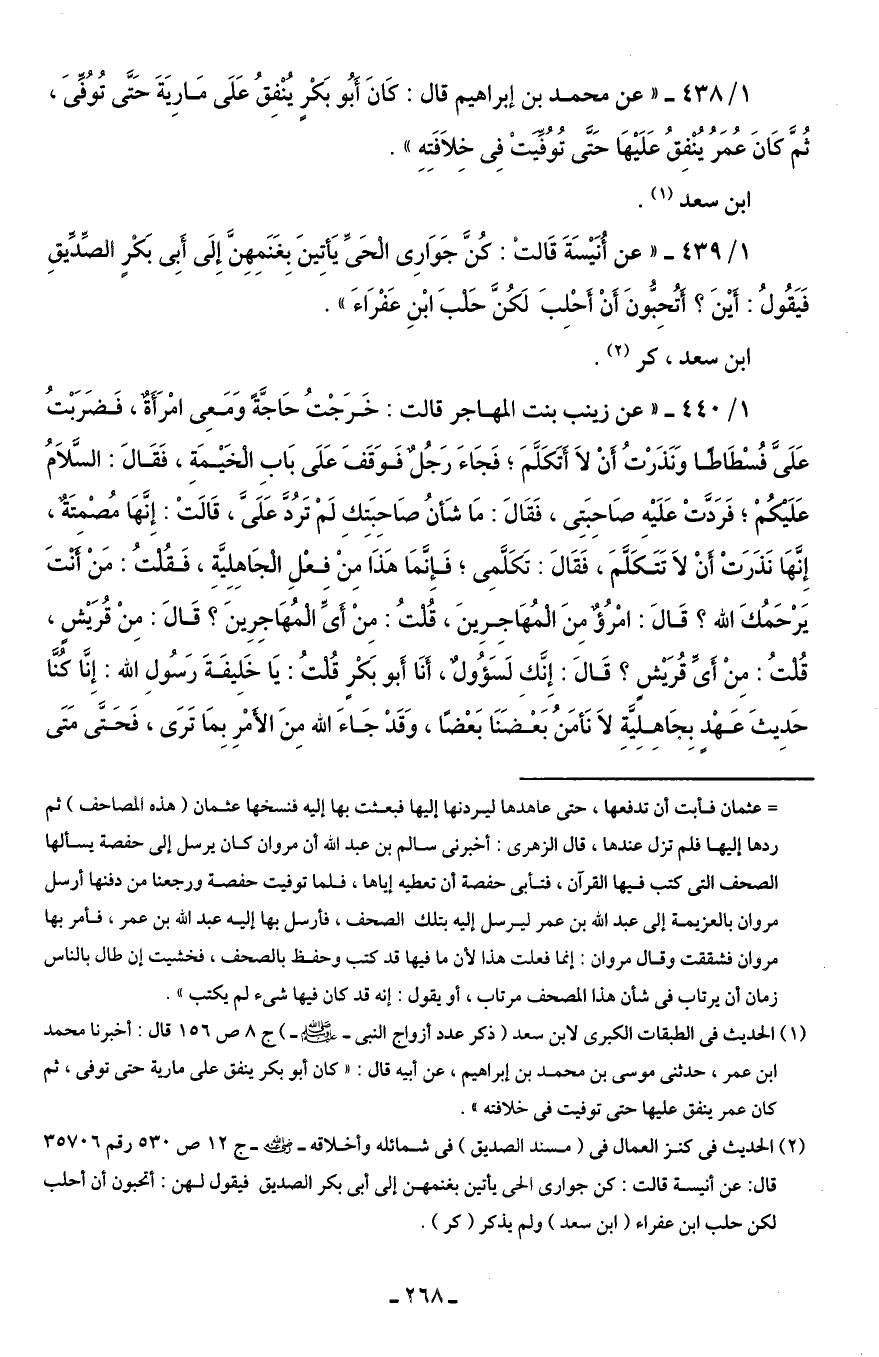 ١/ ٤٣٨ ـ « عن محمـد بن إبراهيم قال : كَانَ أَبُو بَكْرٍ يُنْفِقُ عَلَى مَـارِيَةَ حَتَّى تُوُفِّىَ ،
ثُمَّ كَانَ عُمَرُ يُنْفِقُ عَلَيْهَا حَتَّى تُوُفِّيَتْ فِى خِلاَفَتِهِ » .
ابن سعد (١) .
١/ ٤٣٩ ـ « عن أُنَيْسَةَ قَالَتْ : كُنَّ جَوَارِى الْحَىِّ يَأتِينَ بِغَنَمِهِنَّ إِلَى أَبِى بَكْرٍ الصِّدِّيقِ
فَيَقُولُ : أَيْنَ ؟ أَتُحِبُّونَ أَنْ أَحْلِبَ لَكُنَّ حَلْبَ ابْنِ عَفْرَاءَ » .
ابن سعد ، كر (٢) .
١/ ٤٤٠ ـ « عن زينب بنت المهـاجر قالت : خَـرَجْتُ حَاجَّةً وَمَـعِى امْرَأَةٌ ، فَـضَرَبْتُ
عَلَىَّ فُسْطَاطًـا ونَذَرْتُ أَنْ لاَ أَتَكَلَّمَ ؛ فَجَاءَ رَجُلٌ فَـوَقَفَ عَلَى بَابِ الْخَيْـمَةِ ، فَقَـالَ : السَّلاَمُ
عَلَيْكُمْ ؛ فَرَدَّتْ عَلَيْهِ صَاحِبَتِى ، فَقَالَ : مَا شَأنُ صَاحِبَتِكِ لَمْ تَرُدَّ عَلَىَّ ، قَالَتْ : إِنَّهَا مُصْمِتَةٌ ،
إِنَّهَا نَذَرَتْ أَنْ لاَ تَتَـكَلَّمَ ، فَقَالَ : تَكَلَّمِى ؛ فَـإِنَّمَا هَذَا مِنْ فِـعْلِ الْجَاهِليَّةِ ، فَـقُلْتُ : مَنْ أَنْتَ
يَرْحَمُكَ الله ؟ قَـالَ : امْرُؤٌ مِنَ الْمُهَاجِـرِينَ ، قُلْتُ : مِنْ أَىِّ الْمُهَاجِرِينَ ؟ قَـالَ : مِنْ قُرَيْشٍ ،
قُلْتُ : مِنْ أَىِّ قُرَيْشٍ ؟ قَـالَ : إِنَّكِ لَسَؤُولٌ ، أَنَا أَبو بَكْرٍ قُلْتُ : يَا خَلِيفَـةَ رَسُولِ الله : إِنَّا كُنَّا
حَدِيثَ عَـهْدٍ بِجَاهِـلِيَّةٍ لاَ نَأمَنُ بَعْـضُنَا بَعْضًا ، وَقَدْ جَـاءَ الله مِنَ الأَمْرِ بِمَا تَرَى ، فَحَـتَّى مَتَى
= عثمان فـأبت أن تدفعها ، حتى عاهدها ليـردنها إليها فبعـثت بها إليه فنسخها عثـمان ( هذه المصاحف ) ثم
ردها إليهـا فلم تزل عندها ، قال الزهرى : أخبرنى سـالم بن عبد الله أن مروان كـان يرسل إلى حفصة يسـألها
الصحف التى كتب فـيها القرآن ، فتـأبى حفصة أن تعطيه إياها ، فـلما توفيت حفصـة ورجعنا من دفنها أرسل
مروان بالعزيمـة إلى عبد الله بن عمر ليـرسل إليه بتلك الصحف ، فأرسل بها إليـه عبد الله بن عمر ، فـأمر بها
مروان فشققت وقـال مروان : إنما فعلت هذا لأن ما فيها قد كتب وحفـظ بالصحف ، فخشيت إن طال بالناس
زمان أن يرتاب فى شأن هذا المصحف مرتاب ، أو يقول : إنه قد كان فيها شىء لم يكتب » .
(١) الحديث فى الطبقات الكبرى لابن سعد ( ذكر عدد أزواج النبى ـ ﷺ ـ ) ج ٨ ص ١٥٦ قال : أخبرنا محمد
ابن عمر ، حدثنى موسى بن محمـد بن إبراهيم ، عن أبيه قال : « كان أبو بكر ينفق على مارية حتى توفى ، ثم
كان عمر ينفق عليها حتى توفيت فى خلافته » .
(٢) الحديث فى كنـز العمال فى ( مـسند الصديق ) فى شـمائله وأخـلاقه ـ ﷺ ـ ج ١٢ ص ٥٣٠ رقم ٣٥٧٠٦
قال: عن أنيسـة قالت : كن جوارى الحى يأتين بغنمهـن إلى أبى بكر الصديق فيقول لـهن : أتحبون أن أحلب
لكن حلب ابن عفراء ( ابن سعد ) ولم يذكر ( كر ) .
ـ ٢٦٨ ـ